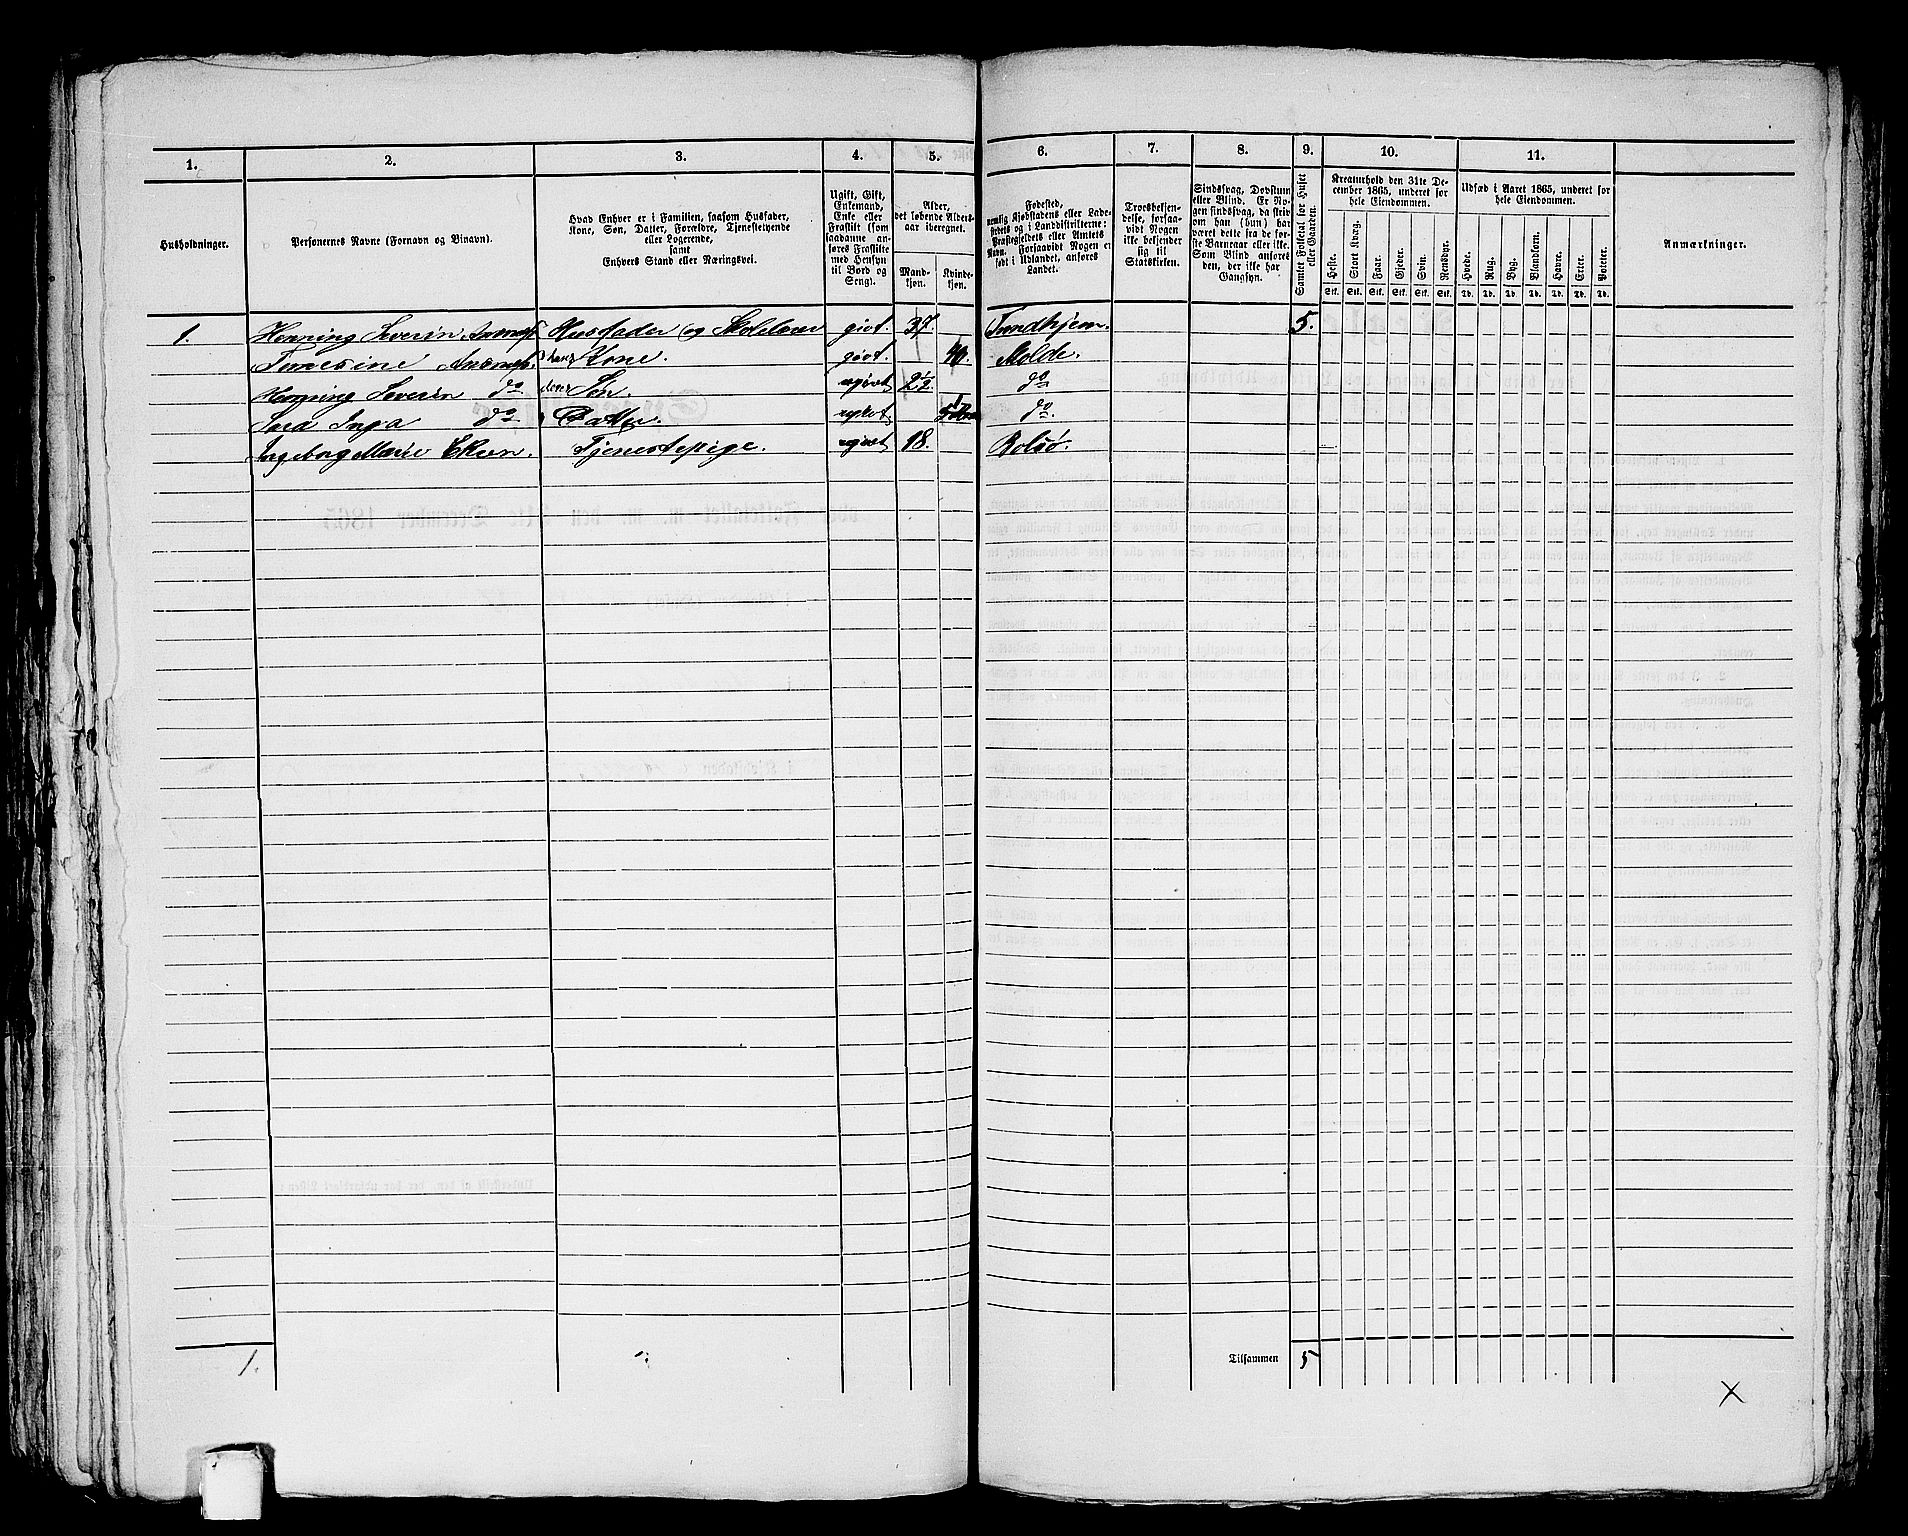 1. 2. 3. 4. 5. 6. 7. 8. 9. 10. 11.
Husholdninger.
Personernes Navne (Fornavn og Binavn).
Hvad Enhver er i Familien, saasom Husfader,
Kone, Søn, Datter, Forældre, Tjenestetyende
eller Logerende,
samt
Enhvers Stand eller Næringsvei.
Ugift, Gift,
Enkemand,
Enke eller
Fraskilt (som
saadanne an-
føres Fraskilte
med Hensyn
til Bord og
Seng).
Alder,
det løbende Alders-
aar iberegnet.
Mand-
kjøn.
Kvinde-
kjøn.
Fødested,
nemlig Kjøbstadens eller Lade-
stedets og i Landdistrikterne:
Præstegjeldets eller Amtets
Navn. Forsaavidt Nogen er
født i Udlandet, anføres
Landet.
Troesbekjen-
delse, forsaa-
vidt Nogen
ikke bekjender
sig til
Statskirken.
Sindssvag, Døvstum
eller Blind. Er No-
gen sindssvag, da skriv
om han (hun) har
været dette fra de før-
ste Barneaar eller ikke.
Som Blind anføres
den, der ikke har
Gangsyn.
Samlet Folketal for Huset
eller Gaarden.
Kreaturhold den 31te De-
cember 1865, underet for
hele Eiendommen.
Heste. Stort Kvæg. Faar. Gjeder. Svin. Rensdyr.
Stk. Stk. Stk. Stk. Stk. Stk.
Udsæd i Aaret 1865, underet for
hele Eiendommen.
Hvede. Rug. Byg. Blandkorn. Havre. Erter. Poteter.
Td. Td. Td. Td. Td. Td. Td.
Anmærkninger.
1. Henning Severin Husfader og Skolelærer givt. 37. Trondhjem. 5.
Kone. givt. 40. Molde.
Henning Severin do deres Søn. ugivt 2½. do
Inga do Datter. ugivt do
Ingeborg Marie Tjenestepige. ugivt 18. Bolsø.
1.
Tilsammen 5
X